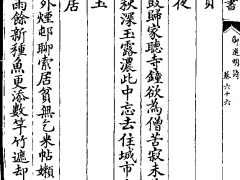 書
御選明詩
卷六十六
頁
放歸家聽寺鐘欲為僧苦寂未
夜
秋深玉露濃此中忘去住城市
玉
外煙邨聊索居貧無乞米帖嬾
雨餘新種魚更添數竿竹遮却